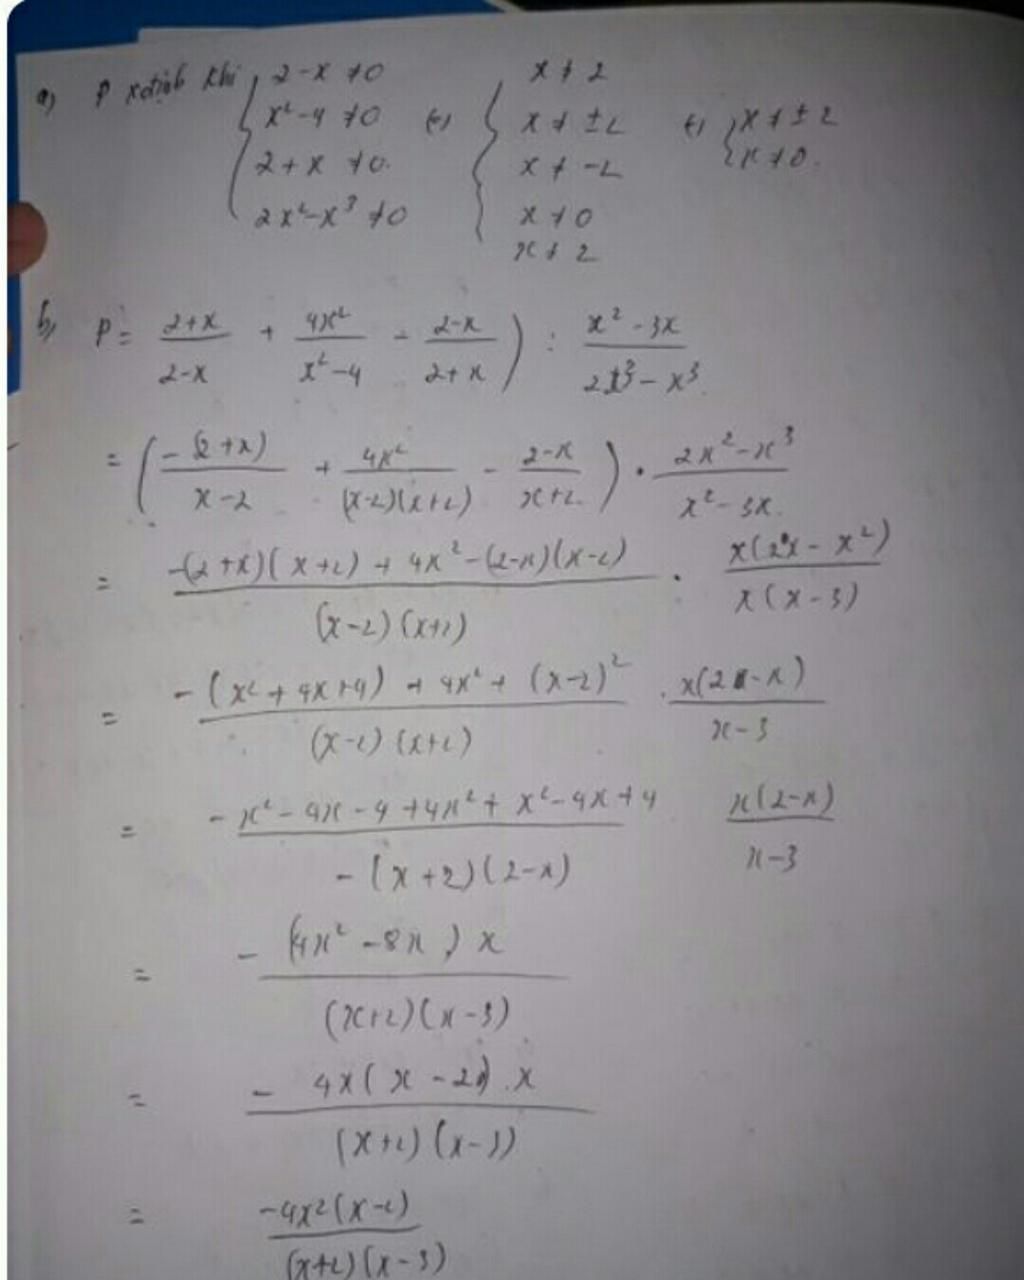 a) P xđịnh khi { 2-x ≠0 x²-4 ≠0 2+x ≠0. 2x²-x³ ≠0 (=) { x ≠ 2 x ≠ ±2 x ≠ -2 x ≠ 0 x ≠ 2 (=) { x ≠ ± 2 x ≠ 0.
b, P = (2+x)/(2-x) + 4x²/(x²-4) - (2-x)/(2+x) ) : (x²-3x)/(2x³-x³).
= ( -(2+x)/(x-2) + 4x²/((x-2)(x+2)) - (2-x)/(x+2) ) . (2x²-x³)/(x²-3x).
= (-(2+x)(x+2) + 4x² -(2-x)(x-2))/((x-2)(x+2)) . x(2x-x²)/(x(x-3))
= (-(x²+4x+4) + 4x² + (x-2)²)/((x-2)(x+2)) . x(2-x)/(x-3)
= (-x²-4x-4+4x²+x²-4x+4)/(-(x+2)(2-x)) x(2-x)/(x-3)
= -(4x²-8x)x/((x+2)(x-3))
= -4x(x-2).x/((x+2)(x-3))
= -4x²(x-2)/((x+2)(x-3))